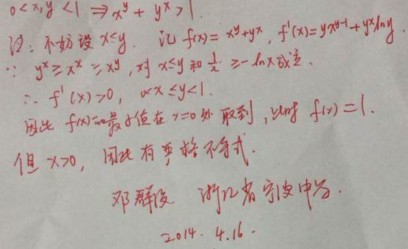 0<x,y<1 ⇒ x^y + y^x > 1.
证: 不妨设 x≤y. 记 f(x) = x^y + y^x, f'(x) = yx^{y-1} + y^x ln y.
∵ y^x ≥ x^x ≥ x^y, 对 x≤y 和 1/x ≥ -ln x 成立.
∴ f'(x)>0, 0<x≤y<1.
因此 f(x) 最小值在 x=0 处取到, 此时 f(x)=1.
但 x>0, 因此有严格不等式.
邓 浙江省宁波中学.
2014. 4.16.